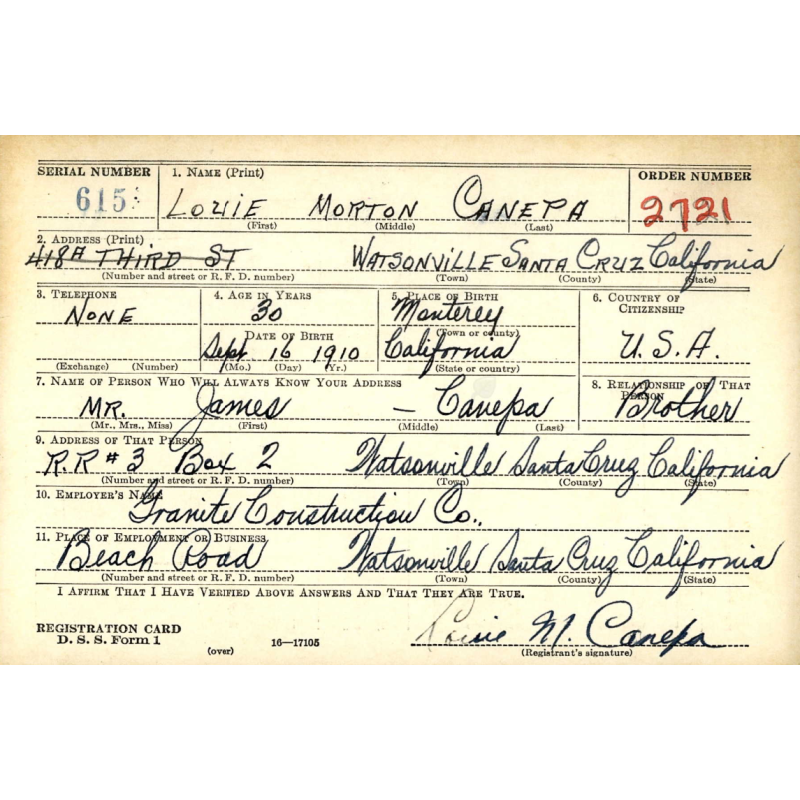 SERIAL NUMBER 1. NAME (Print) ORDER NUMBER
615 LOUIE MORTON CANEPA 2721
(First) (Middle) (Last)
2. ADDRESS (Print)
418A THIRD ST WATSONVILLE SANTA CRUZ California
(Number and street or R. F. D. number) (Town) (County) (State)
3. TELEPHONE 4. AGE IN YEARS 5. PLACE OF BIRTH 6. COUNTRY OF CITIZENSHIP
NONE 30 Monterey
DATE OF BIRTH (Town or county)
Sept 16 1910 California U.S.A.
(Exchange) (Number) (Mo.) (Day) (Yr.) (State or country)
7. NAME OF PERSON WHO WILL ALWAYS KNOW YOUR ADDRESS 8. RELATIONSHIP OF THAT PERSON
MR. James — Canepa Brother
(Mr., Mrs., Miss) (First) (Middle) (Last)
9. ADDRESS OF THAT PERSON
R.R #3 Box 2 Watsonville Santa Cruz California
(Number and street or R. F. D. number) (Town) (County) (State)
10. EMPLOYER'S NAME
Granite Construction Co.,
11. PLACE OF EMPLOYMENT OR BUSINESS
Beach Road Watsonville Santa Cruz California
(Number and street or R. F. D. number) (Town) (County) (State)
I AFFIRM THAT I HAVE VERIFIED ABOVE ANSWERS AND THAT THEY ARE TRUE.
REGISTRATION CARD
D. S. S. Form 1 (over) 16—17105 Louie M. Canepa
(Registrant's signature)